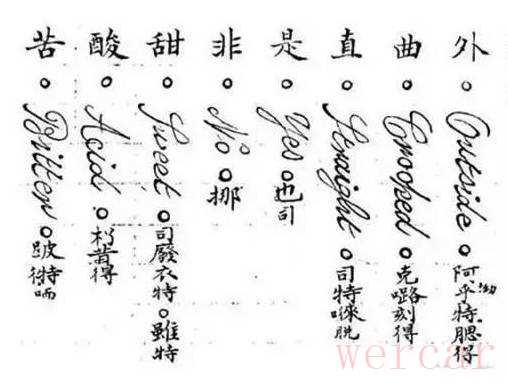 外 Outside 阿乎特腮得
曲 Crooked 克嚕刻得
直 Straight 司特喙脫
是 Yes 也司
非 No 挪
甜 Sweet 司廢衣特 雖特
酸 Acid 得
苦 Bitter 特
wercar